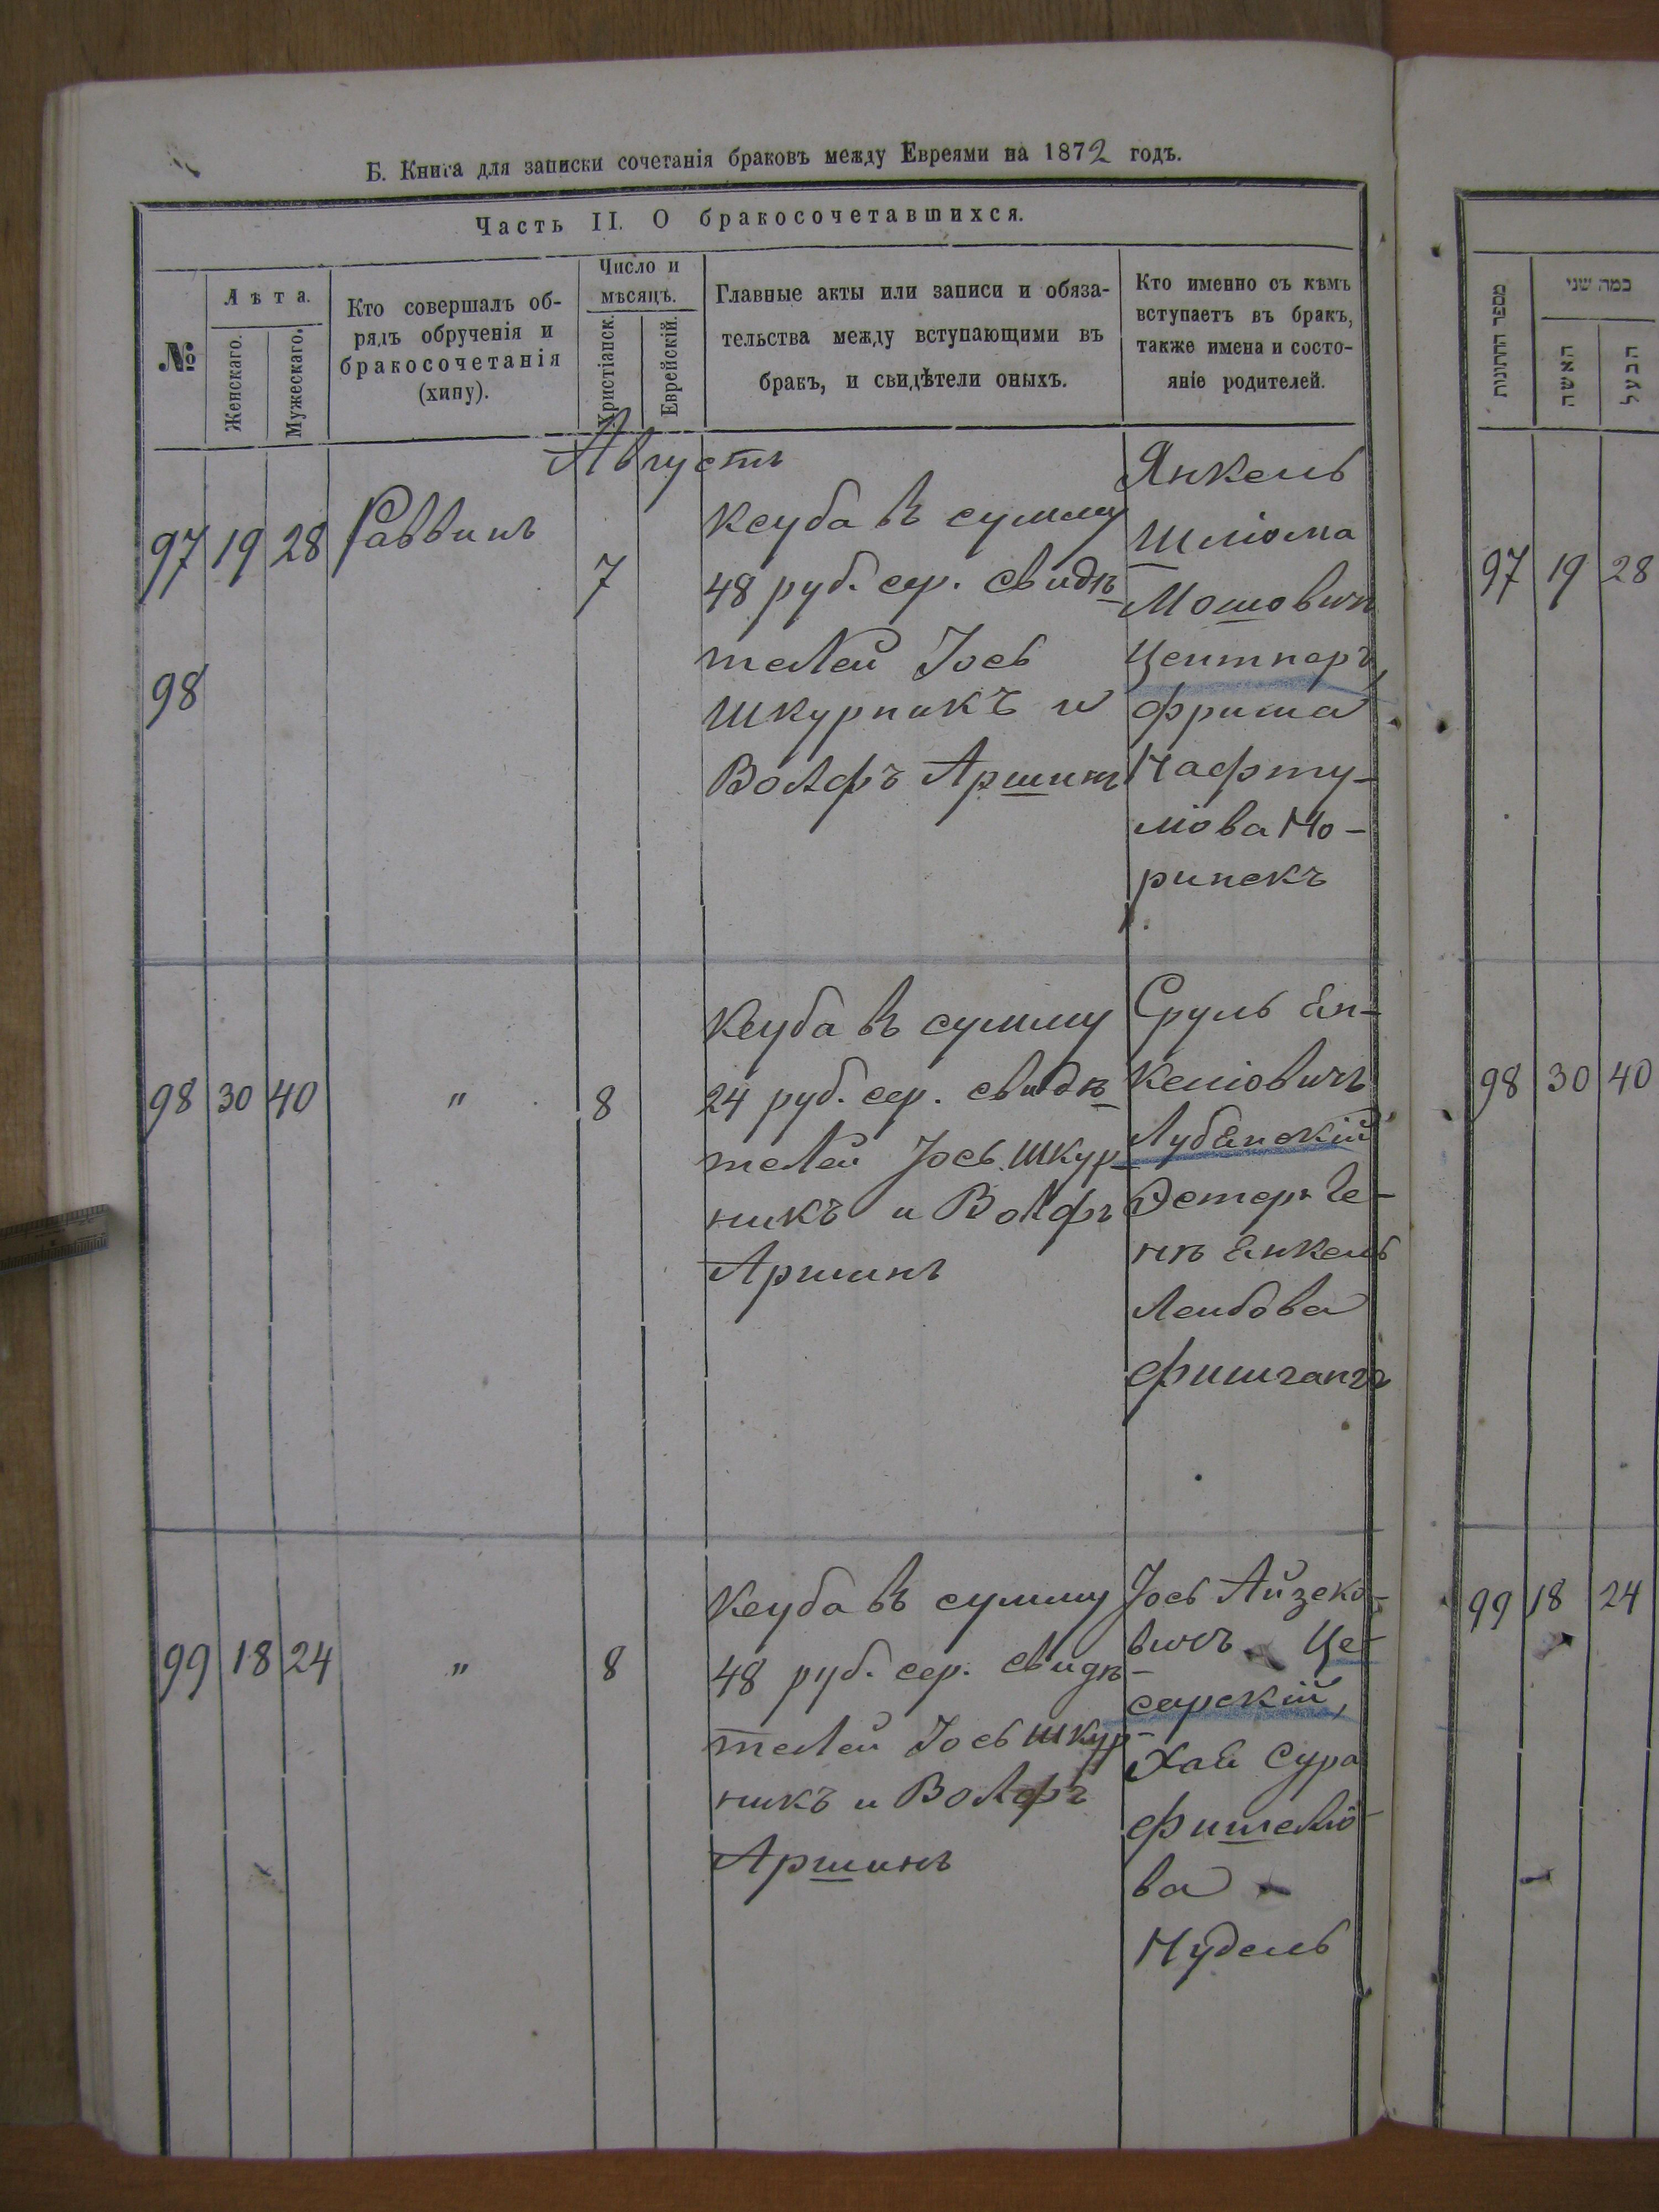 Б. Книга для записки сочетанія браковъ между Евреями на 1872 годъ.
Часть II. О бракосочетавшихся.
№
Лѣта.
Женскаго.
Мужескаго.
Кто совершалъ об-
рядъ обрученія и
бракосочетанія
(хипу).
Число и
мѣсяцъ.
Христіанск.
Еврейскій.
Главные акты или записи и обяза-
тельства между вступающими въ
бракъ, и свидѣтели оныхъ.
Кто именно съ кѣмъ
вступаетъ въ бракъ,
также имена и состо-
яніе родителей.
Августъ
97 19 28 Раввинъ
7
Ксуба въ сумму
48 руб. сер. свидѣ
телей Іось
Шкурникъ и
Вольфъ Аршинъ
Янкель
Шліома
Мошовичъ
Центнеръ,
Фрима
Нафту-
ліова Но-
ринскъ
98
98 30 40 " 8
Ксуба въ сумму
24 руб. сер. свидѣ
телей Іось Шкур-
никъ и Вольфъ
Аршинъ
Сруль Ен-
келіовичъ
Лубенскій
Эстеръ Ге-
ня Енкель
Лейбова
Фишгангъ
99 18 24 " 8
Ксуба въ сумму
48 руб. сер. свидѣ-
телей Іось Шкур-
никъ и Вольфъ
Аршинъ
Іось Айзеко-
вичъ Це-
сарскій,
Хая Сура
Фишеліо-
ва
Нудель
מספר החתונות
כמה שני
האשה
הבעל
97 19 28
98 30 40
99 18 24